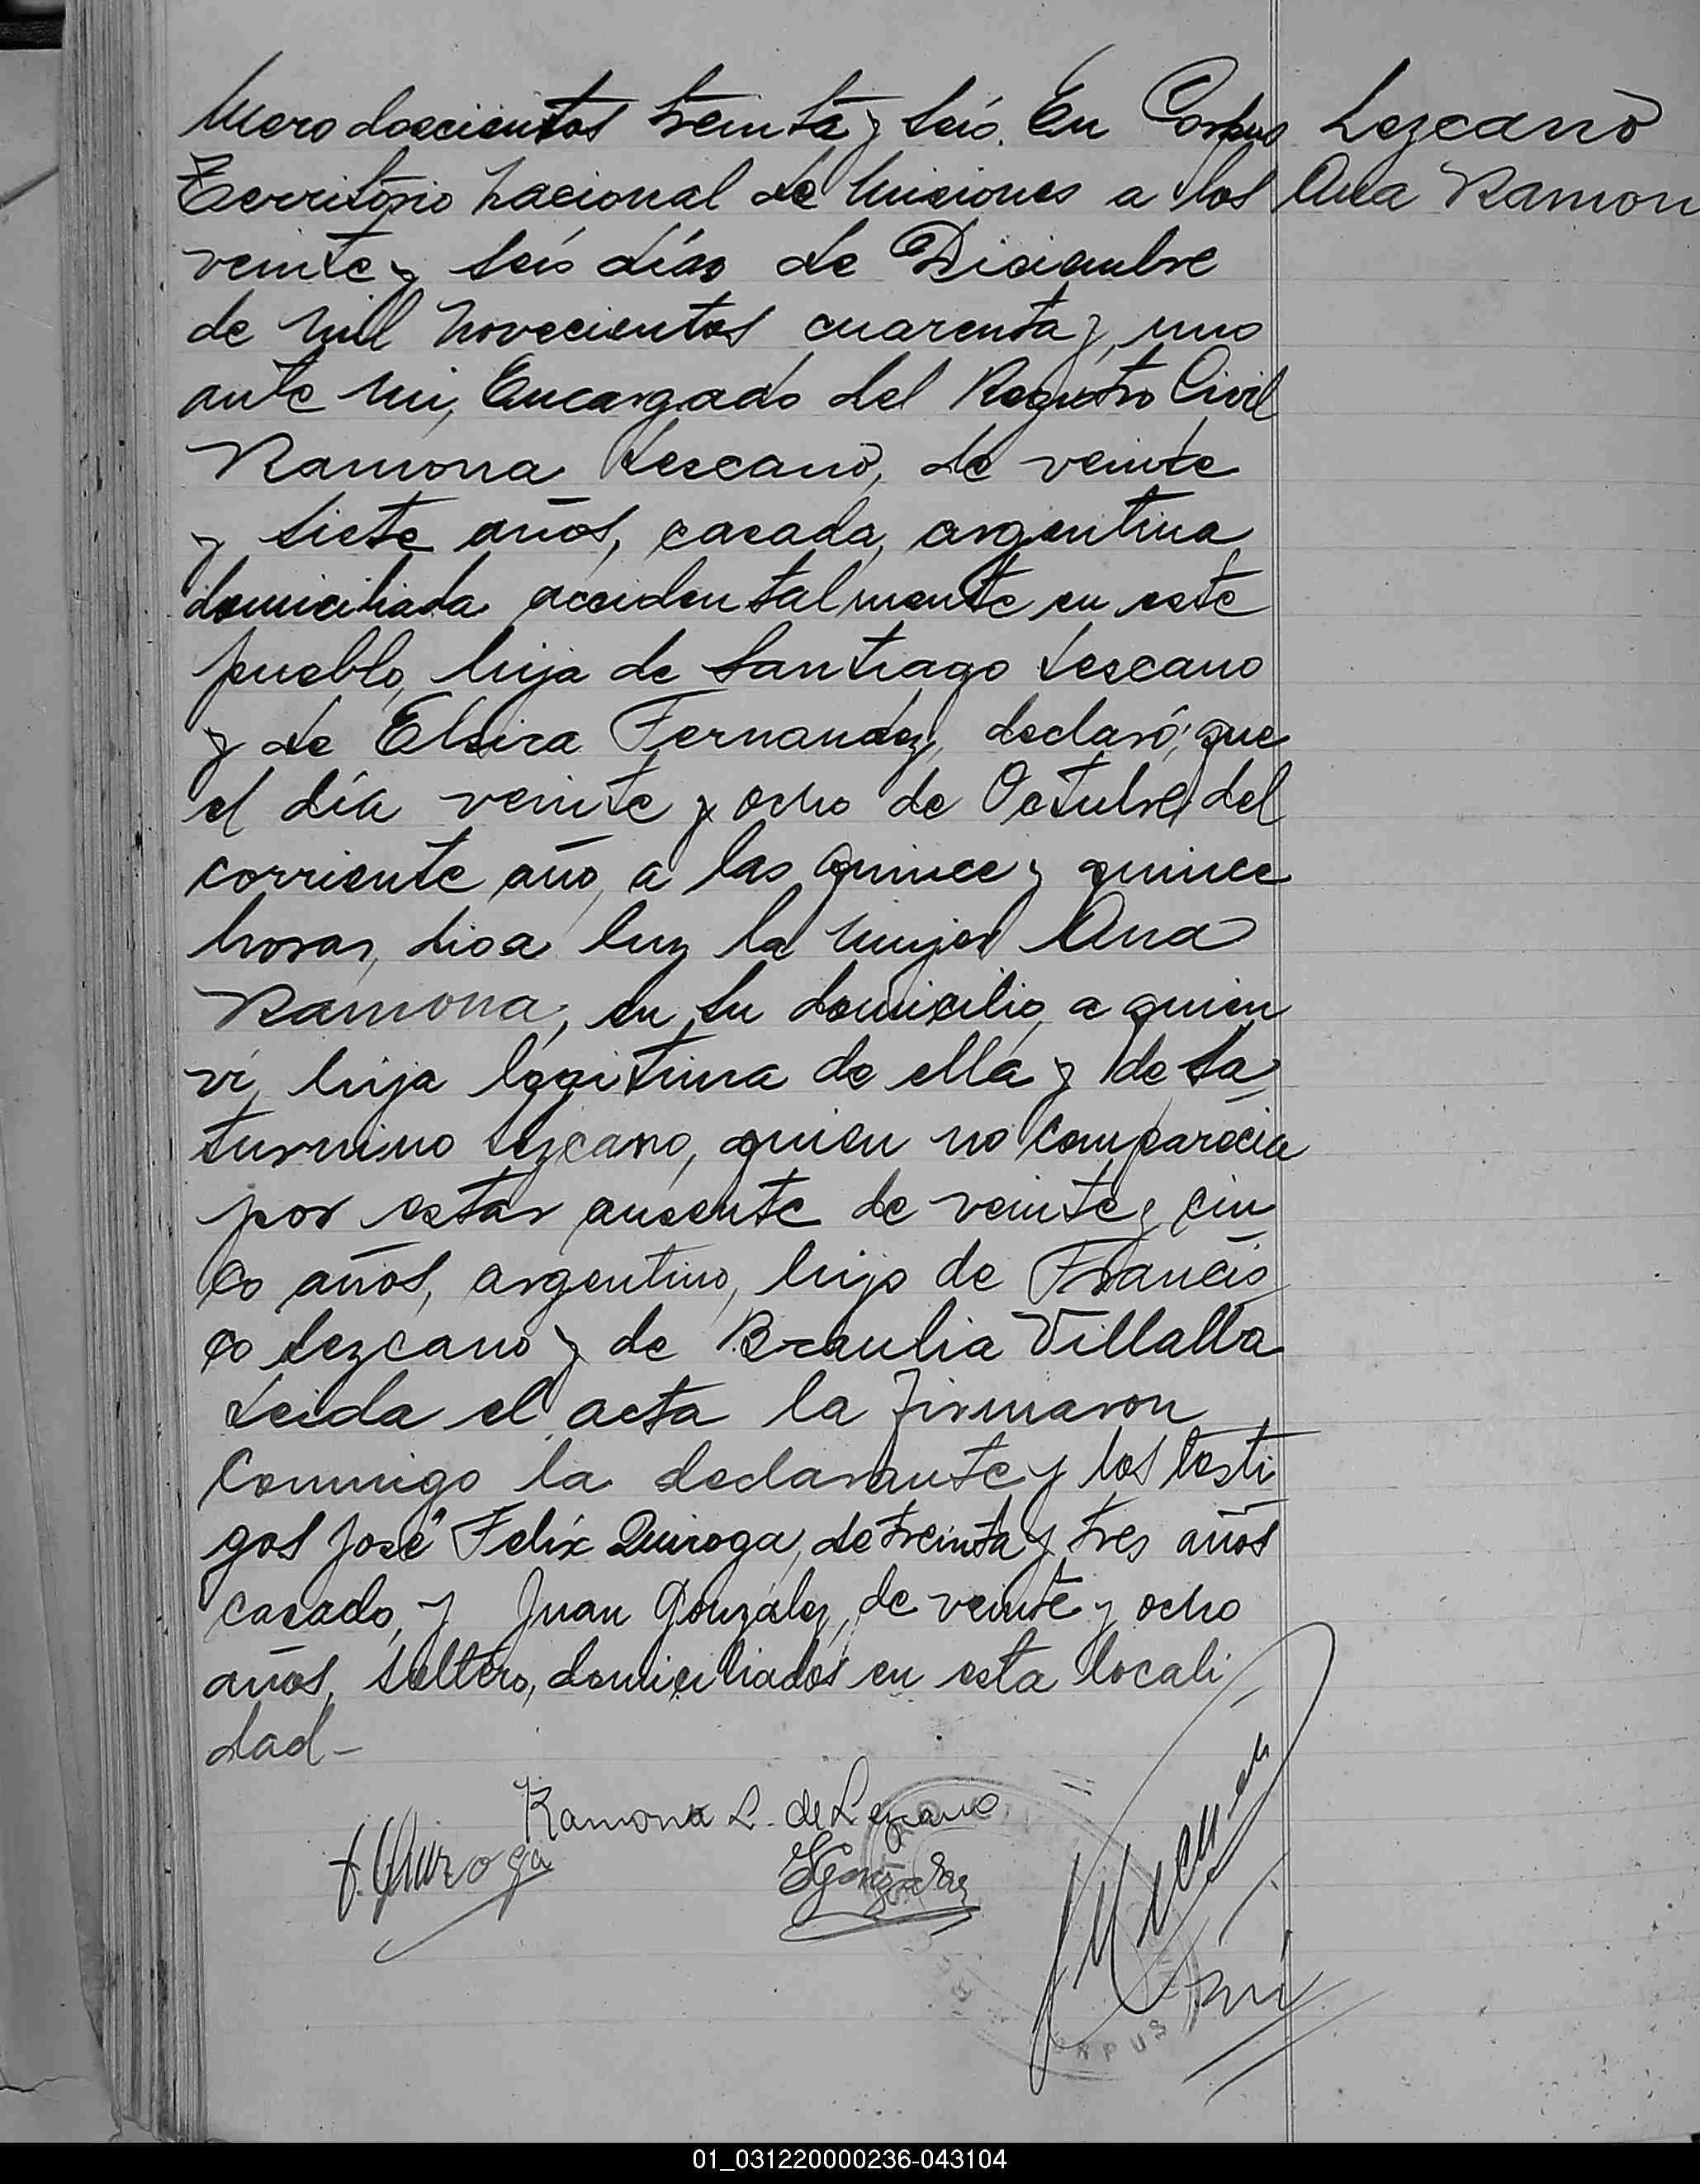 Número doscientos treinta y seis. En Corpus
Lezcano
Territorio Nacional de Misiones a los
Ana Ramon
veinte y seis días de Diciembre
de mil novecientos cuarenta y uno
ante mi, Encargado del Registro Civil
Ramona Lescano, de veinte
y siete años, casada, argentina
domiciliada accidentalmente en este
pueblo, hija de Santiago Lescano
y de Elvira Fernandez, declaró; que
el día veinte y ocho de Octubre del
corriente año, a las quince y quince
horas, dio a luz la mujer Ana
Ramona, en su domicilio, a quien
ví, hija legitima de ella y de Sa
turnino Lezcano, quien no comparecia
por estar ausente de veinte y cin
co años, argentino, hijo de Francis
co Lezcano y de Braulia Villalba
Leida el acta la firmaron
conmigo la declarante y los testi
gos José Felix Quiroga, de treinta y tres años
casado, y Juan Gonzalez, de veinte y ocho
años, soltero, domiciliados en esta locali
dad-
Ramona L. de Lezcano
f. Quiroga
Gonzalez
CORPUS
01_031220000236-043104